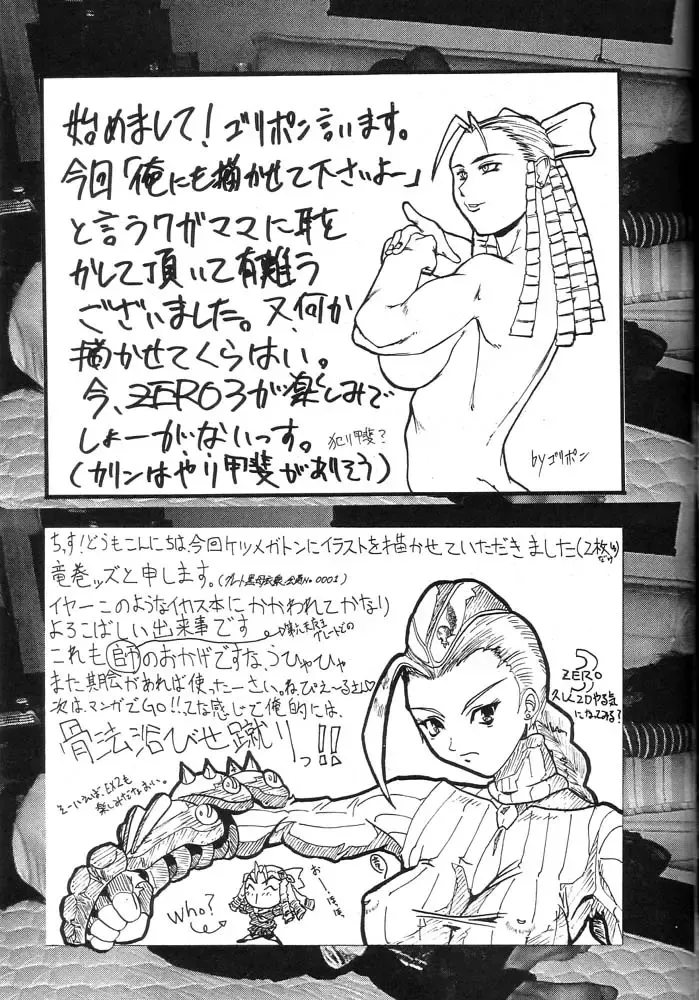 始めまして！ゴリポン言います。
今回「俺にも描かせて下さいよー」
と言うワガママに耳を
かして頂いて有難う
ございました。又、何か
描かせてくらはい。
今、ZERO3が楽しみで
しょーがないっす。
犯り甲斐？
(カリンはやり甲斐がありそう)
byゴリポン
ちっす!どうもこんにちは、今回ケツメガトンにイラストを描かせていただきました(2枚
竜巻ッズと申します。
イヤーこのようなイカス本にかかわれてかなり
よろこばしい出来事です
これも師のおかげですなうひゃひゃ
また機会があれば使ったーさい。ねびえ〜るさん♡
次は、マンガでGO!!てな感じで俺的には、
骨法浴びせ蹴りっ!!
そーいえば、EX2も
楽しみだなおい。
ZERO3
久しく2Dやる気
になってみる?
Who?
おーほほほ